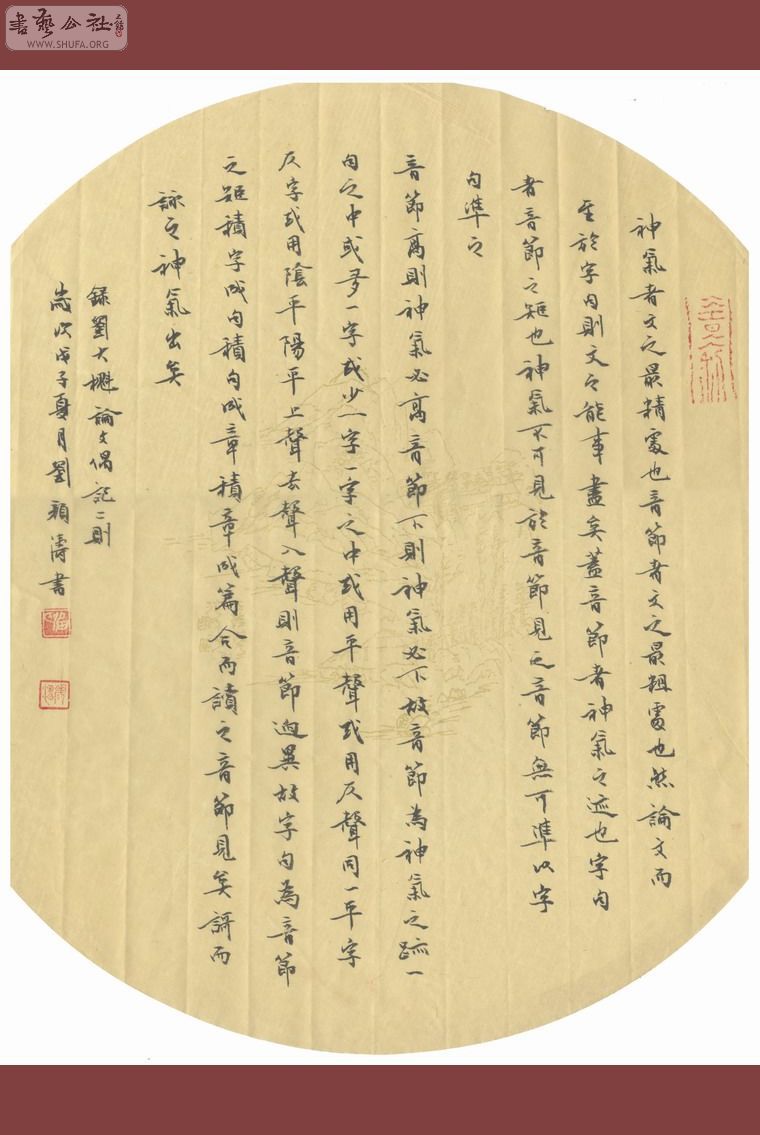 書藝公社
WWW.SHUFA.ORG
神氣者文之最精處也音節者文之最粗處也然論文而
至於字句則文之能事盡矣蓋音節者神氣之迹也字句
者音節之矩也神氣不可見於音節見之音節無可準以字
句準之
音節高則神氣必高音節下則神氣必下故音節為神氣之跡一
句之中或多一字或少一字一字之中或用平聲或用仄聲同一平字
仄字或用陰平陽平上聲去聲入聲則音節迥異故字句為音節
之矩積字成句積句成章積章成篇合而讀之音節見矣謌而
詠之神氣出矣
錄劉大櫆論文偶記二則
歲次戊子夏月劉顏濤書